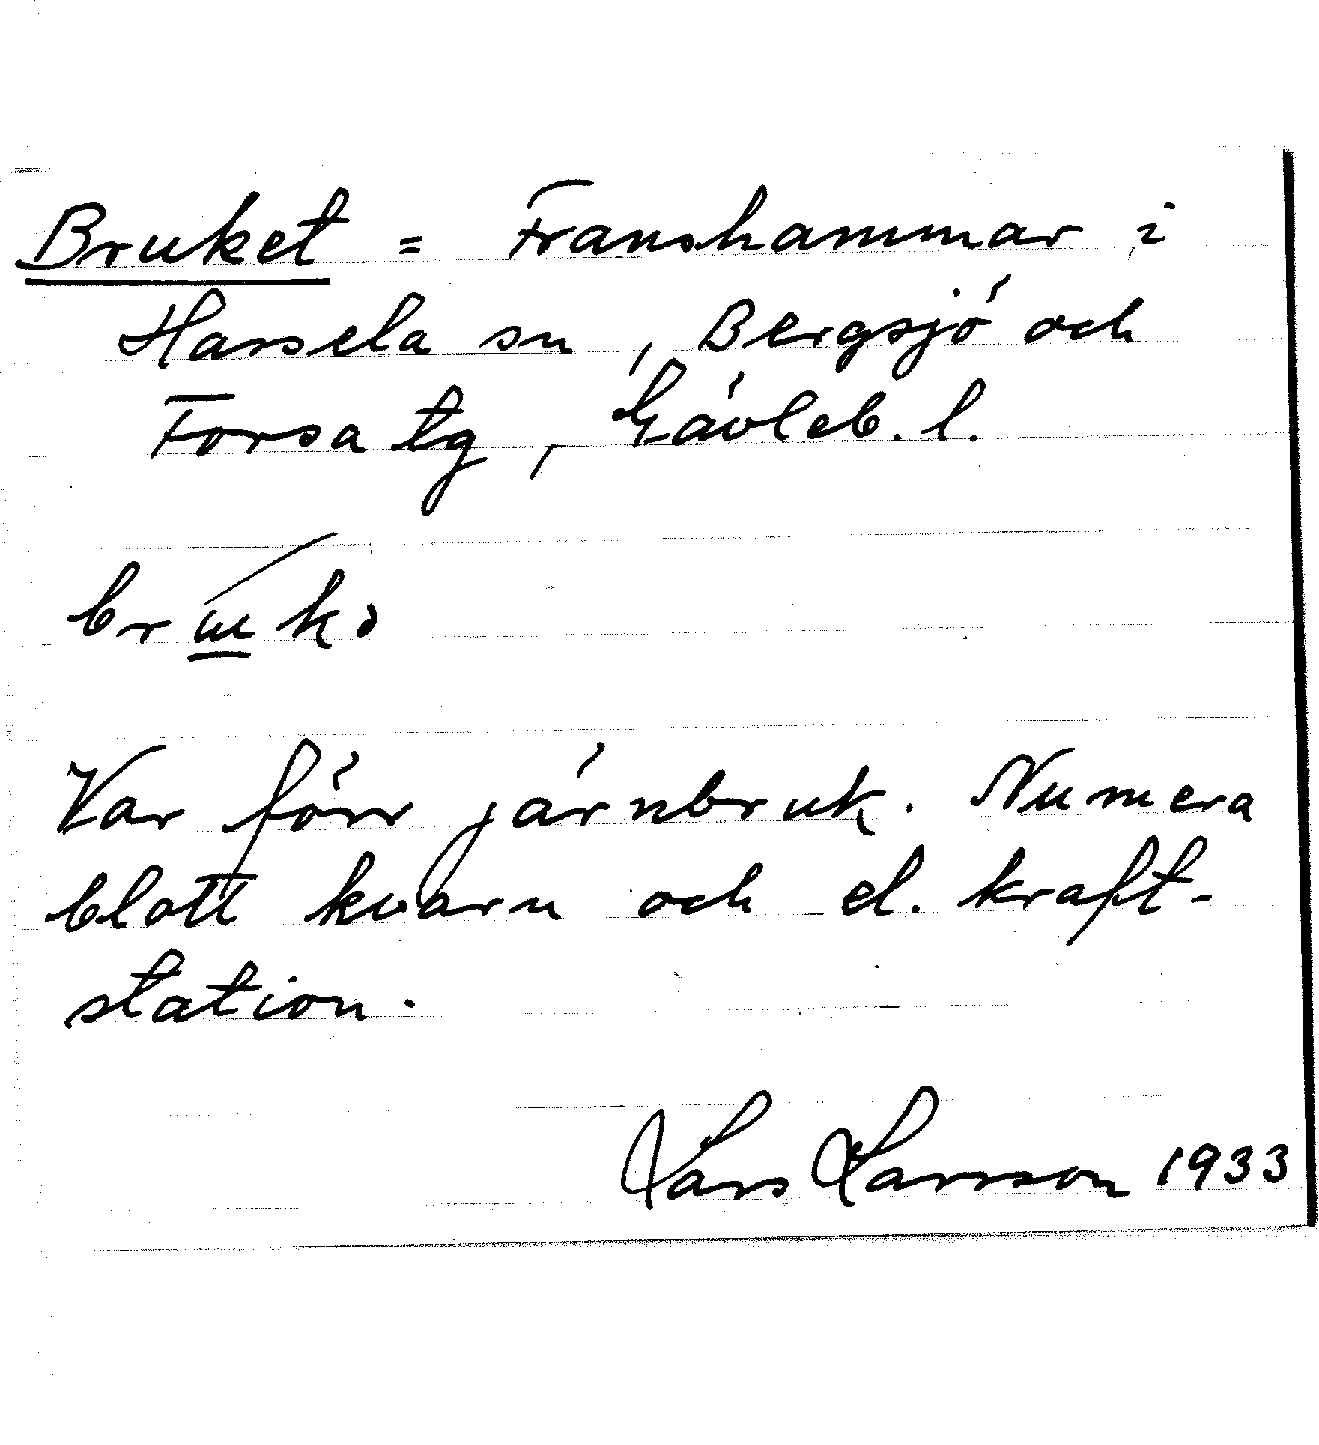 Bruket = Franshammar i
Hassela sn, Bergsjö och
Forsa tg, Gävleb. l.
Var förr järnbruk. Numera
blott kvarn och el. kraft-
station.
Lars Larsson 1933